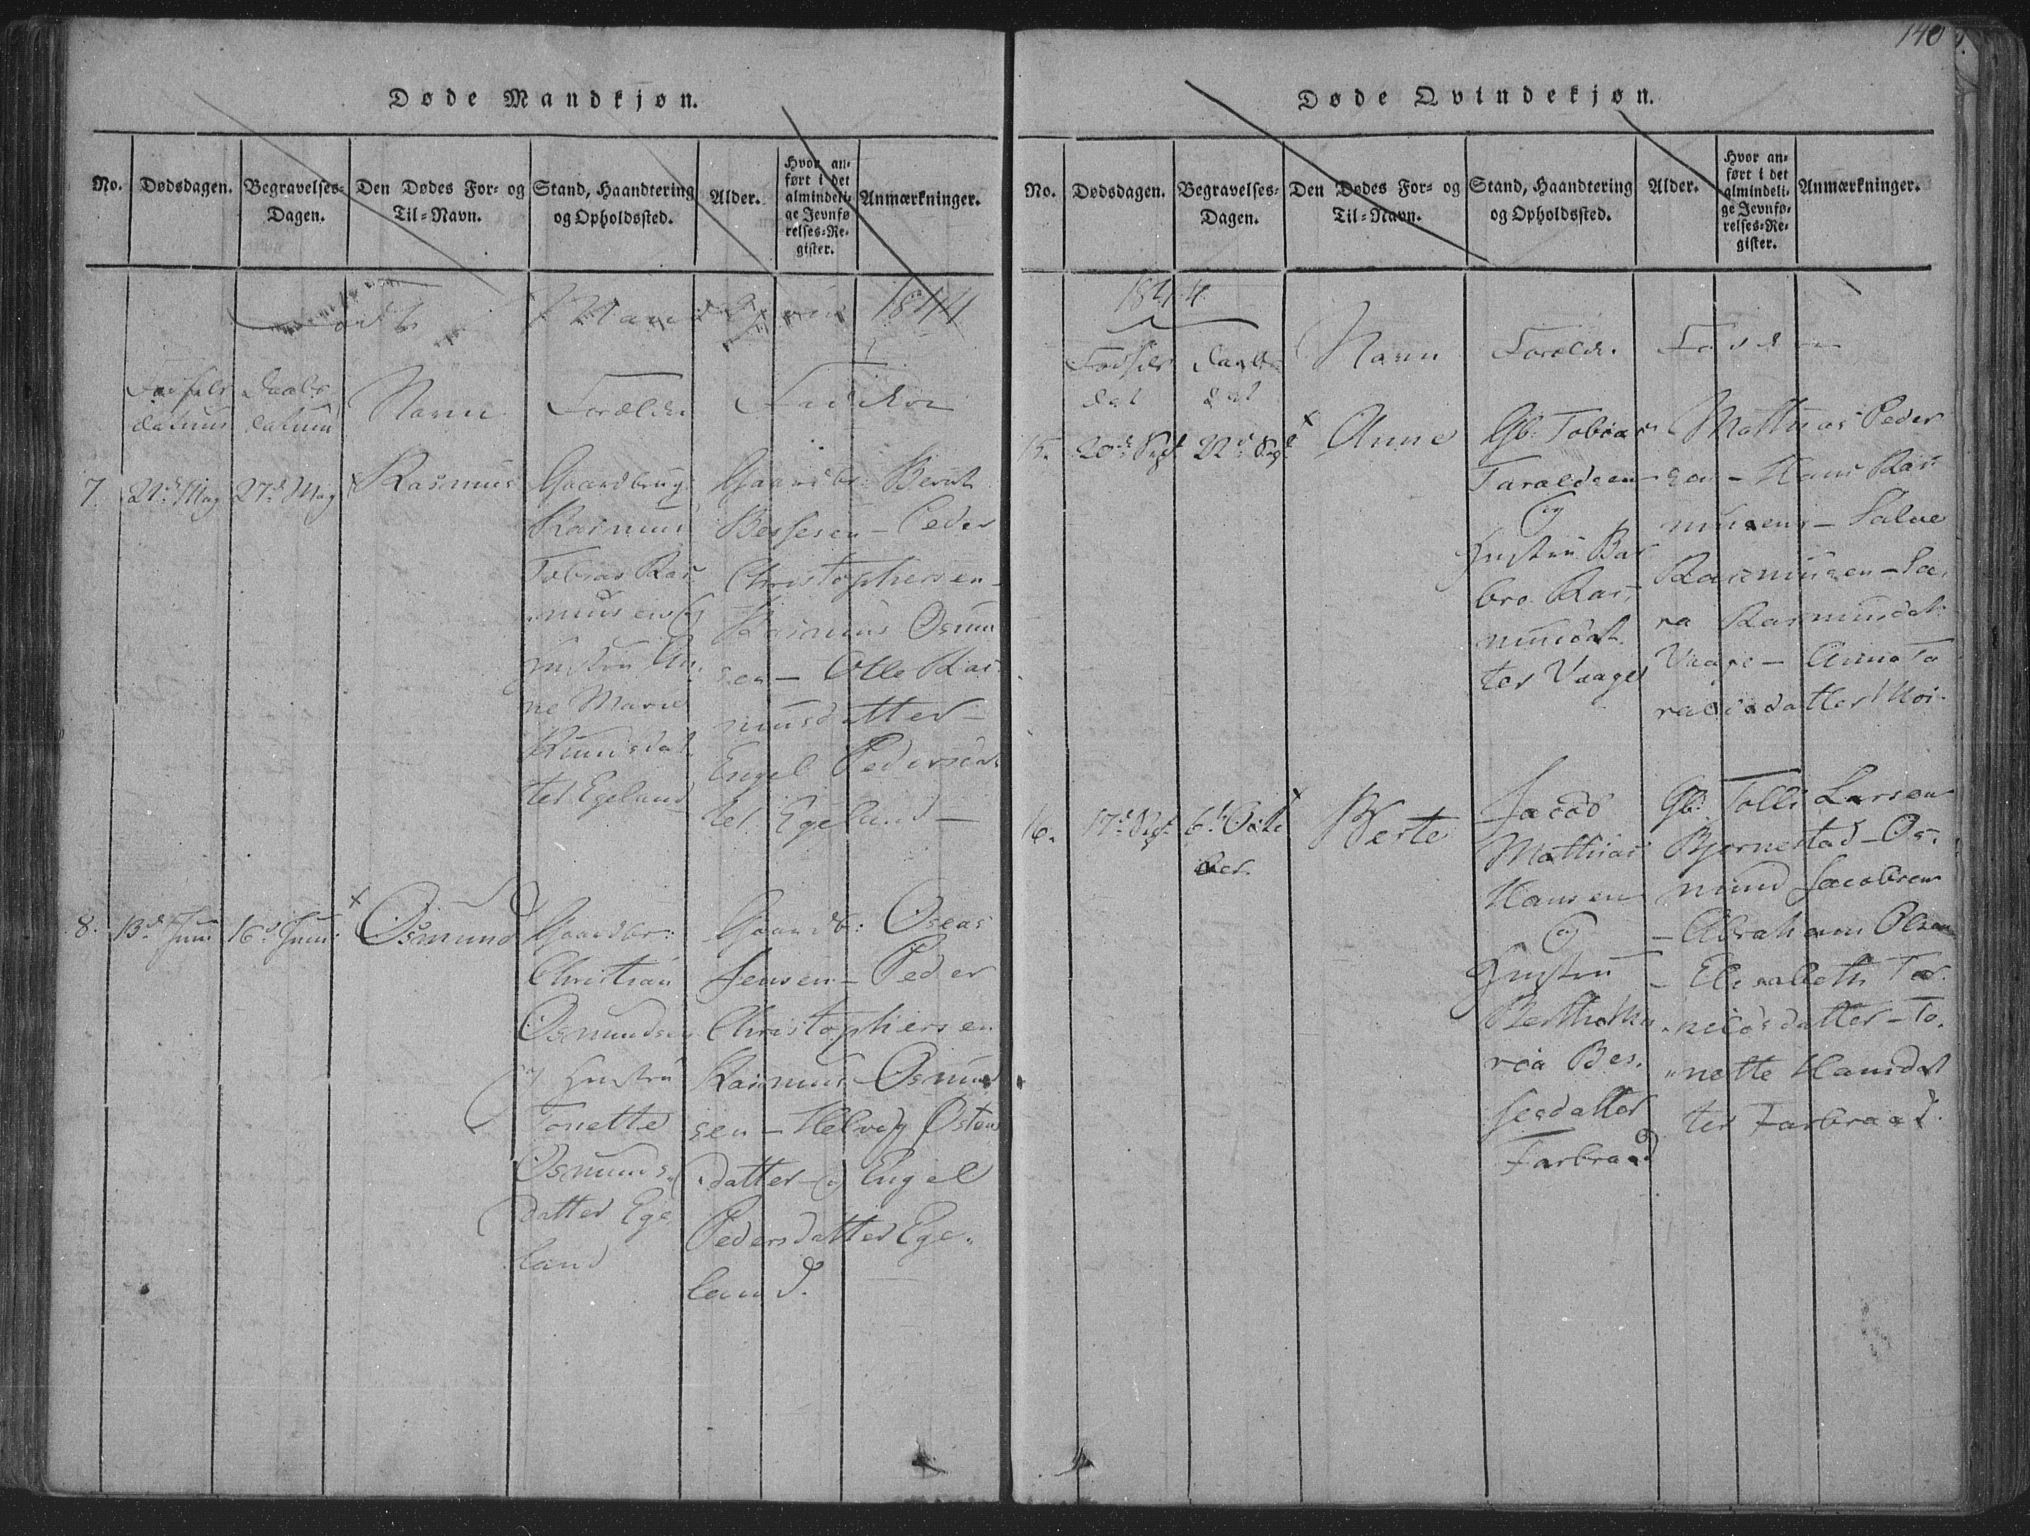 140
Døde Mandkjøn.
No.
Dødsdagen.
Begravelses-
Dagen.
Den Dødes For- og
Til-Navn.
Stand, Haandtering
og Opholdssted.
Alder.
Hvor an-
ført i det
almindeli-
ge Jevnfø-
relses-Re-
gister.
Anmærkninger.
1844
Fødsels
datum
Daabs
datum
Navn
Forældre
Faddere
7.
21de May
27de May
Rasmus
Gaardbrug:
Rasmus
Tobias Ras-
musen og
Hustru An-
ne Marie
Knudsdat-
ter Egeland
Gaardbr: Bernt
Bessesen - Peder
Christophersen -
Rasmus Osmun
sen - Olle Ras-
musdatter -
Engel Pedersdat
ter Egeland -
8.
13de Juni
16de Juni
Osmund
Gaardbr:
Christian
Osmundsen
og Hustru
Tonette
Osmunds-
datter Ege-
land
Gaardb: Oseas
Jensen - Peder
Christophersen
Rasmus Osmund
sen - Helvig Osten
datter og Engel
Pedersdatter Ege-
land.
Døde Qvindekjøn.
No.
Dødsdagen.
Begravelses-
Dagen.
Den Dødes For- og
Til-Navn.
Stand, Haandtering
og Opholdssted.
Alder.
Hvor an-
ført i det
almindeli-
ge Jevnfø-
relses-Re-
gister.
Anmærkninger.
1844
Fødsels
dat
Daabs
dat
Navn
Forældre
Faddere
15.
20de Sept
22de Sept
Anne
Gb: Tobias
Taraldsen
og
Hustru Bar
bro Ras-
musdat-
ter Vaage
Mathias Peder
sen - Hans Ras
musens - Salve
Rasmusen - Sa-
ra Rasmusdat:
Vaage - Anne Ta
raldsdatter Moi -
16.
17de Sept
6te Octo
ber.
Berte
Jacob
Mathias
Hansen
og
Hustru
Bertha Ma
ria Bes-
sesdatter
Farbraad
Gb: Tolli Larsen
Bjørnestad - Os-
mund Jacobsen
- Abraham Olsen
- Elisabeth Tor-
kildsdatter - To-
nette Hansdat
ter Farbraad.